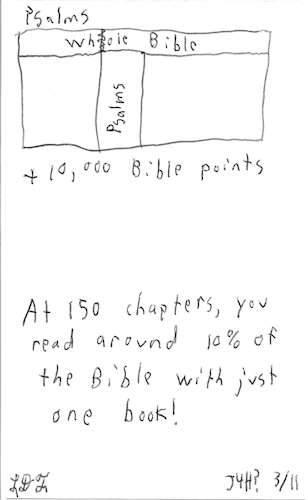 Psalms
Whole Bible
Psalms
+ 10,000 Bible points
At 150 chapters, you
read around 10% of
the Bible with just
one book!
J4H? 3/11